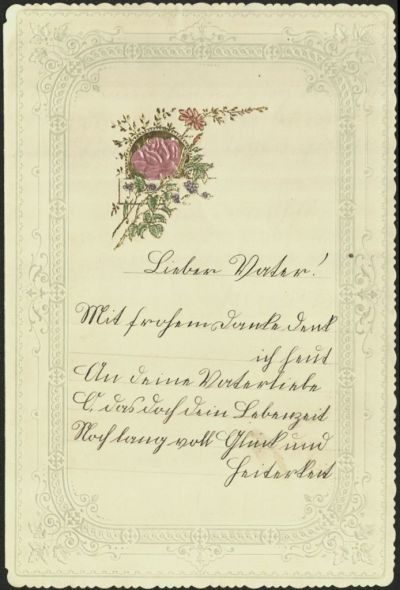 Lieber Vater!
Mit frohem Danke denk
ich heut
An deine Vaterliebe
O, das doch dein Lebenzeit
Noch lang voll Glück und
Heiterkeit